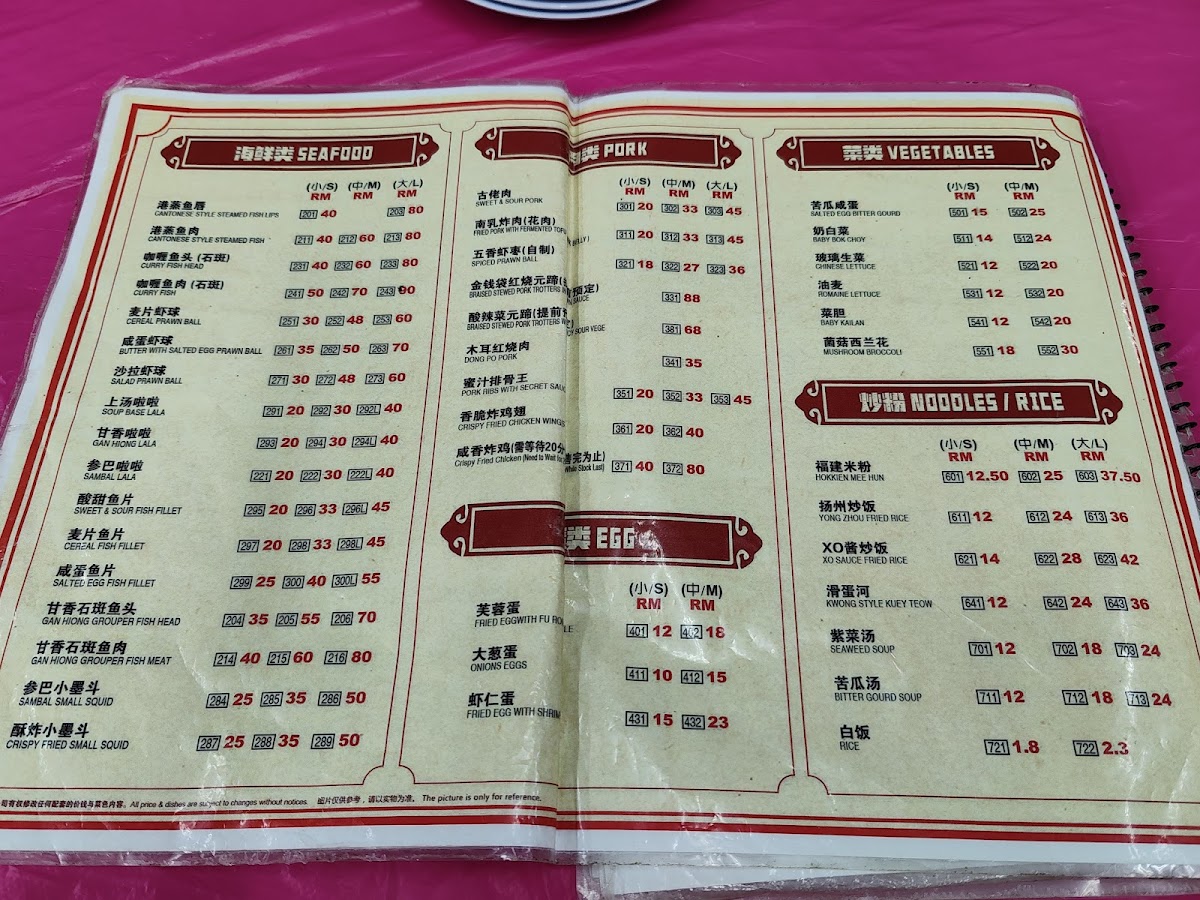 海鲜类 SEAFOOD
(小/S) (中/M) (大/L)
RM RM RM
港蒸鱼唇
CANTONESE STYLE STEAMED FISH LIPS
201 40 203 80
港蒸鱼肉
CANTONESE STYLE STEAMED FISH
211 40 212 60 213 80
咖喱鱼头 (石斑)
CURRY FISH HEAD
231 40 232 60 233 80
咖喱鱼肉 (石斑)
CURRY FISH
241 50 242 70 243 90
麦片虾球
CEREAL PRAWN BALL
251 30 252 48 253 60
咸蛋虾球
BUTTER WITH SALTED EGG PRAWN BALL
261 35 262 50 263 70
沙拉虾球
SALAD PRAWN BALL
271 30 272 48 273 60
上汤啦啦
SOUP BASE LALA
291 20 292 30 292L 40
甘香啦啦
GAN HIONG LALA
293 20 294 30 294L 40
参巴啦啦
SAMBAL LALA
221 20 222 30 222L 40
酸甜鱼片
SWEET & SOUR FISH FILLET
295 20 296 33 296L 45
麦片鱼片
CEREAL FISH FILLET
297 20 298 33 298L 45
咸蛋鱼片
SALTED EGG FISH FILLET
299 25 300 40 300L 55
甘香石斑鱼头
GAN HIONG GROUPER FISH HEAD
204 35 205 55 206 70
甘香石斑鱼肉
GAN HIONG GROUPER FISH MEAT
214 40 215 60 216 80
参巴小墨斗
SAMBAL SMALL SQUID
284 25 285 35 286 50
酥炸小墨斗
CRISPY FRIED SMALL SQUID
287 25 288 35 289 50
类 PORK
(小/S) (中/M) (大/L)
RM RM RM
古佬肉
SWEET & SOUR PORK
301 20 302 33 303 45
南乳炸肉(花肉)
FRIED PORK WITH FERMENTED TOFU BELLY)
311 20 312 33 313 45
五香虾枣(自制)
SPICED PRAWN BALL
321 18 322 27 323 36
金钱袋红烧元蹄 预定)
BRAISED STEWED PORK TROTTERS SAUCE
331 88
酸辣菜元蹄(提前
BRAISED STEWED PORK TROTTERS SOUR VEGE
381 68
木耳红烧肉
DONG PO PORK
341 35
蜜汁排骨王
PORK RIBS WITH SECRET
351 20 352 33 353 45
香脆炸鸡翅
CRISPY FRIED CHICKEN WINGS
361 20 362 40
咸香炸鸡(需等待20分 完为止)
Crispy Fried Chicken (Need to Wait Whole Stock Last)
371 40 372 80
类 EGG
(小/S) (中/M)
RM RM
芙蓉蛋
FRIED EGGWITH FU
401 12 402 18
大葱蛋
ONIONS EGGS
411 10 412 15
虾仁蛋
FRIED EGG WITH SHRIM
431 15 432 23
菜类 VEGETABLES
(小/S) (中/M)
RM RM
苦瓜咸蛋
SALTED EGG BITTER GOURD
501 15 502 25
奶白菜
BABY BOK CHOY
511 14 512 24
玻璃生菜
CHINESE LETTUCE
521 12 522 20
油麦
ROMAINE LETTUCE
531 12 532 20
菜胆
BABY KAILAN
541 12 542 20
菌菇西兰花
MUSHROOM BROCCOLI
551 18 552 30
炒粉 NOODLES / RICE
(小/S) (中/M) (大/L)
RM RM RM
福建米粉
HOKKIEN MEE HUN
601 12.50 602 25 603 37.50
扬州炒饭
YONG ZHOU FRIED RICE
611 12 612 24 613 36
XO酱炒饭
XO SAUCE FRIED RICE
621 14 622 28 623 42
滑蛋河
KWONG STYLE KUEY TEOW
641 12 642 24 643 36
紫菜汤
SEAWEED SOUP
701 12 702 18 703 24
苦瓜汤
BITTER GOURD SOUP
711 12 712 18 713 24
白饭
RICE
721 1.8 722 2.3
司有权修改任何配套的价钱与菜色内容。All price & dishes are subject to changes without notices. 图片仅供参考，请以实物为准。 The picture is only for reference.